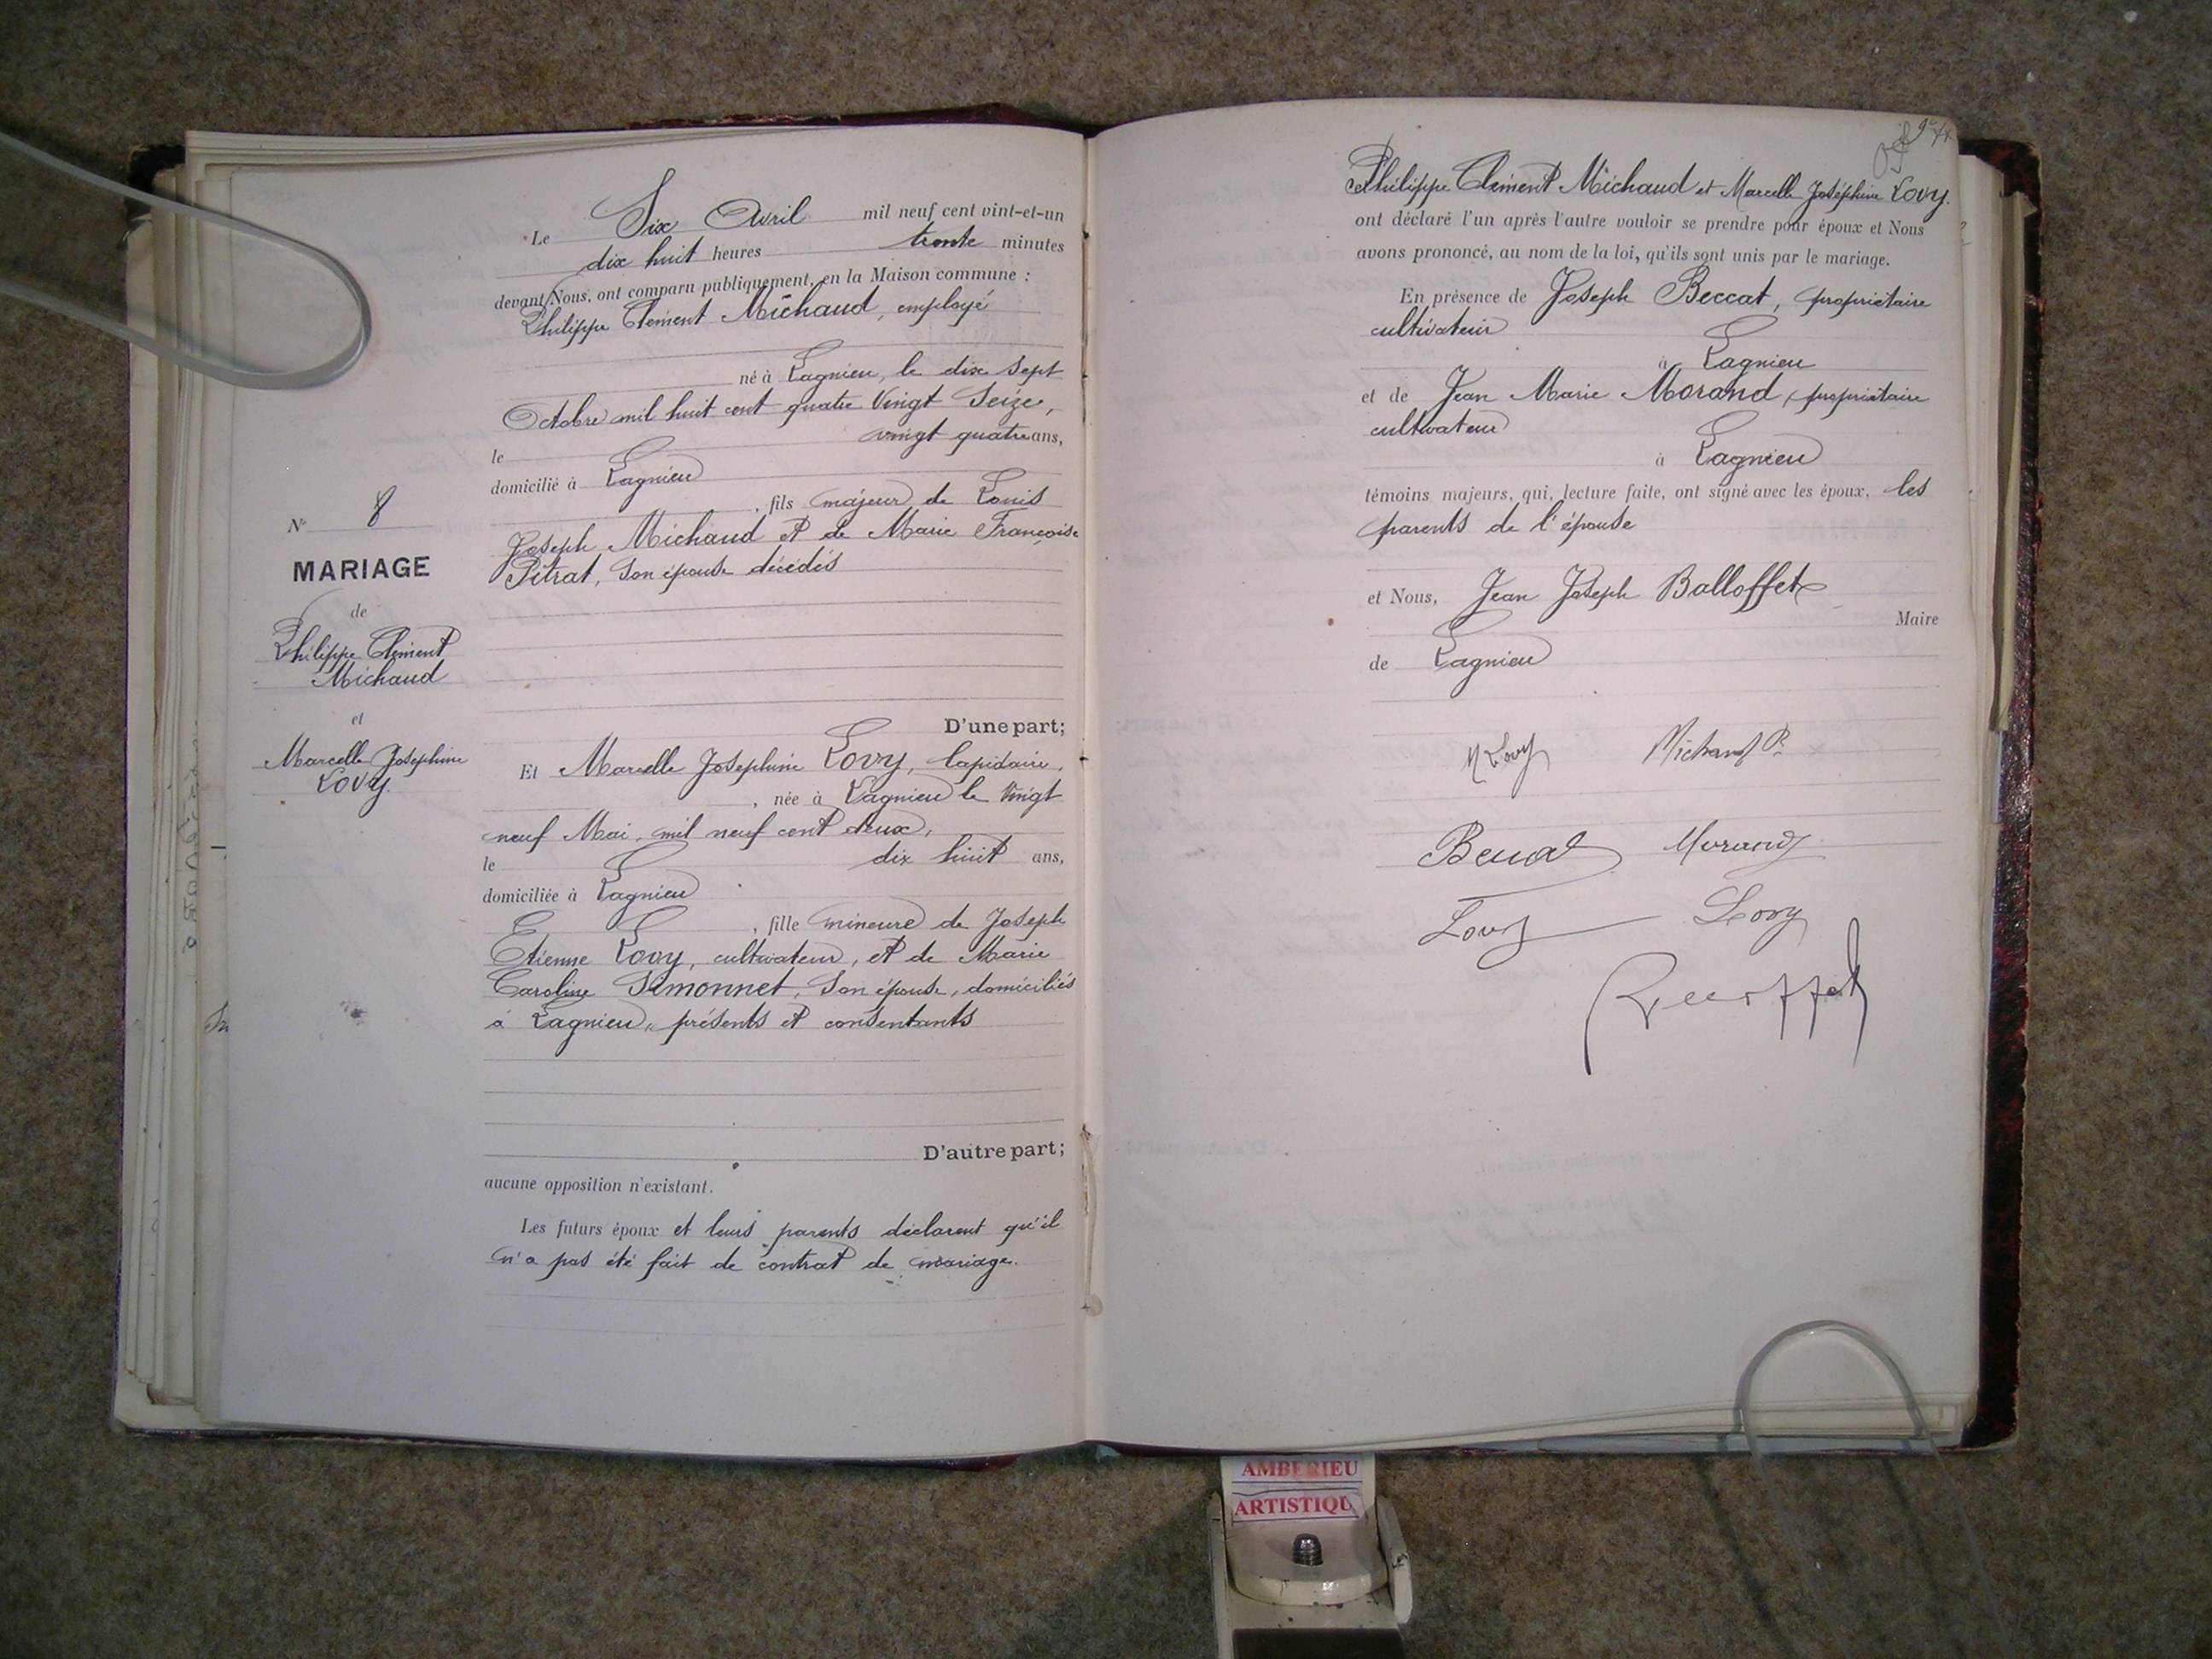 N° 8
MARIAGE
de
Philippe Clément
Michaud
et
Marcelle Josephine
Lovy.
Le Six Avril mil neuf cent vint-et-un
dix huit heures trente minutes
devant Nous, ont comparu publiquement, en la Maison commune :
Philippe Clément Michaud, employé
né à Lagnieu, le dix sept
Octobre mil huit cent quatre Vingt Seize,
le vingt quatre ans,
domicilié à Lagnieu
, fils majeur de Louis
Joseph Michaud et de Marie Françoise
Pitrat, Son épouse décédés
D'une part;
Et Marcelle Josephine Lovy, lapidaire,
, née à Lagnieu le Vingt
neuf Mai, mil neuf cent deux,
le dix huit ans,
domiciliée à Lagnieu
, fille mineure de Joseph
Etienne Lovy, cultivateur, et de Marie
Caroline Simonnet, Son épouse, domiciliés
à Lagnieu, présents et consentants
D'autre part;
aucune opposition n'existant.
Les futurs époux et leurs parents déclarent qu'il
n'a pas été fait de contrat de mariage.
Philippe Clément Michaud et Marcelle Joséphine Lovy.
ont déclaré l'un après l'autre vouloir se prendre pour époux et Nous
avons prononcé, au nom de la loi, qu'ils sont unis par le mariage.
En présence de Joseph Beccat, propriétaire
cultivateur
à Lagnieu
et de Jean Marie Morand, propriétaire
cultivateur
à Lagnieu
témoins majeurs, qui, lecture faite, ont signé avec les époux, les
parents de l'épouse
et Nous, Jean Joseph Balloffet
Maire
de Lagnieu
M Lovy Michaud P.
Beccat Morand
Lovy Lovy
Balloffet
AMBERIEU
ARTISTIQU